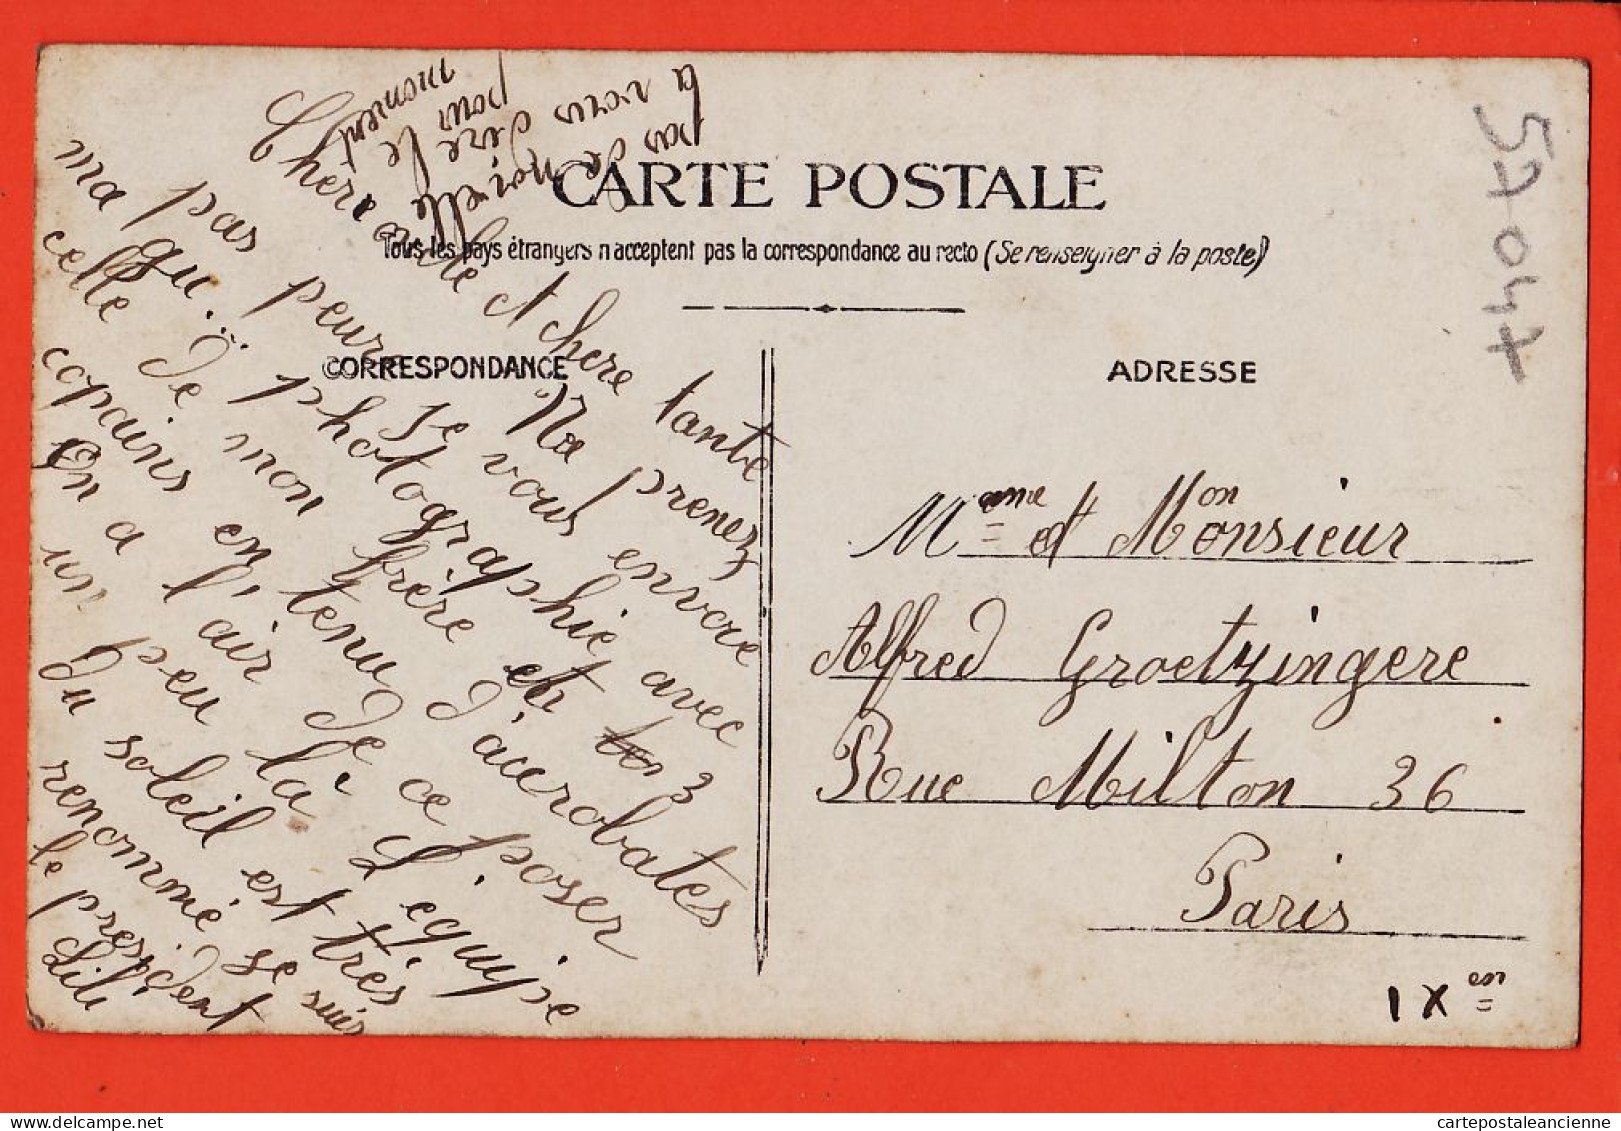 CARTE POSTALE
Tous les pays étrangers n'acceptent pas la correspondance au recto (Se renseigner à la poste)
CORRESPONDANCE
ADRESSE
57047
Chère oncle et chere tante
Ne prenez
pas peure je vous envoie
ma photographie avec
celle de mon frère et 3
copains en tenu d'acerobates
On a l'air de ce poser
un peu là L'équipe
du soleil est très
renommé se suis
le president
Lili
pas de nouvelle
a vous dire
pour le
moment
Mame et Mon Monsieur
Alfred Groetzingere
Rue Milton 36
Paris
IX em
cartepostaleancienne